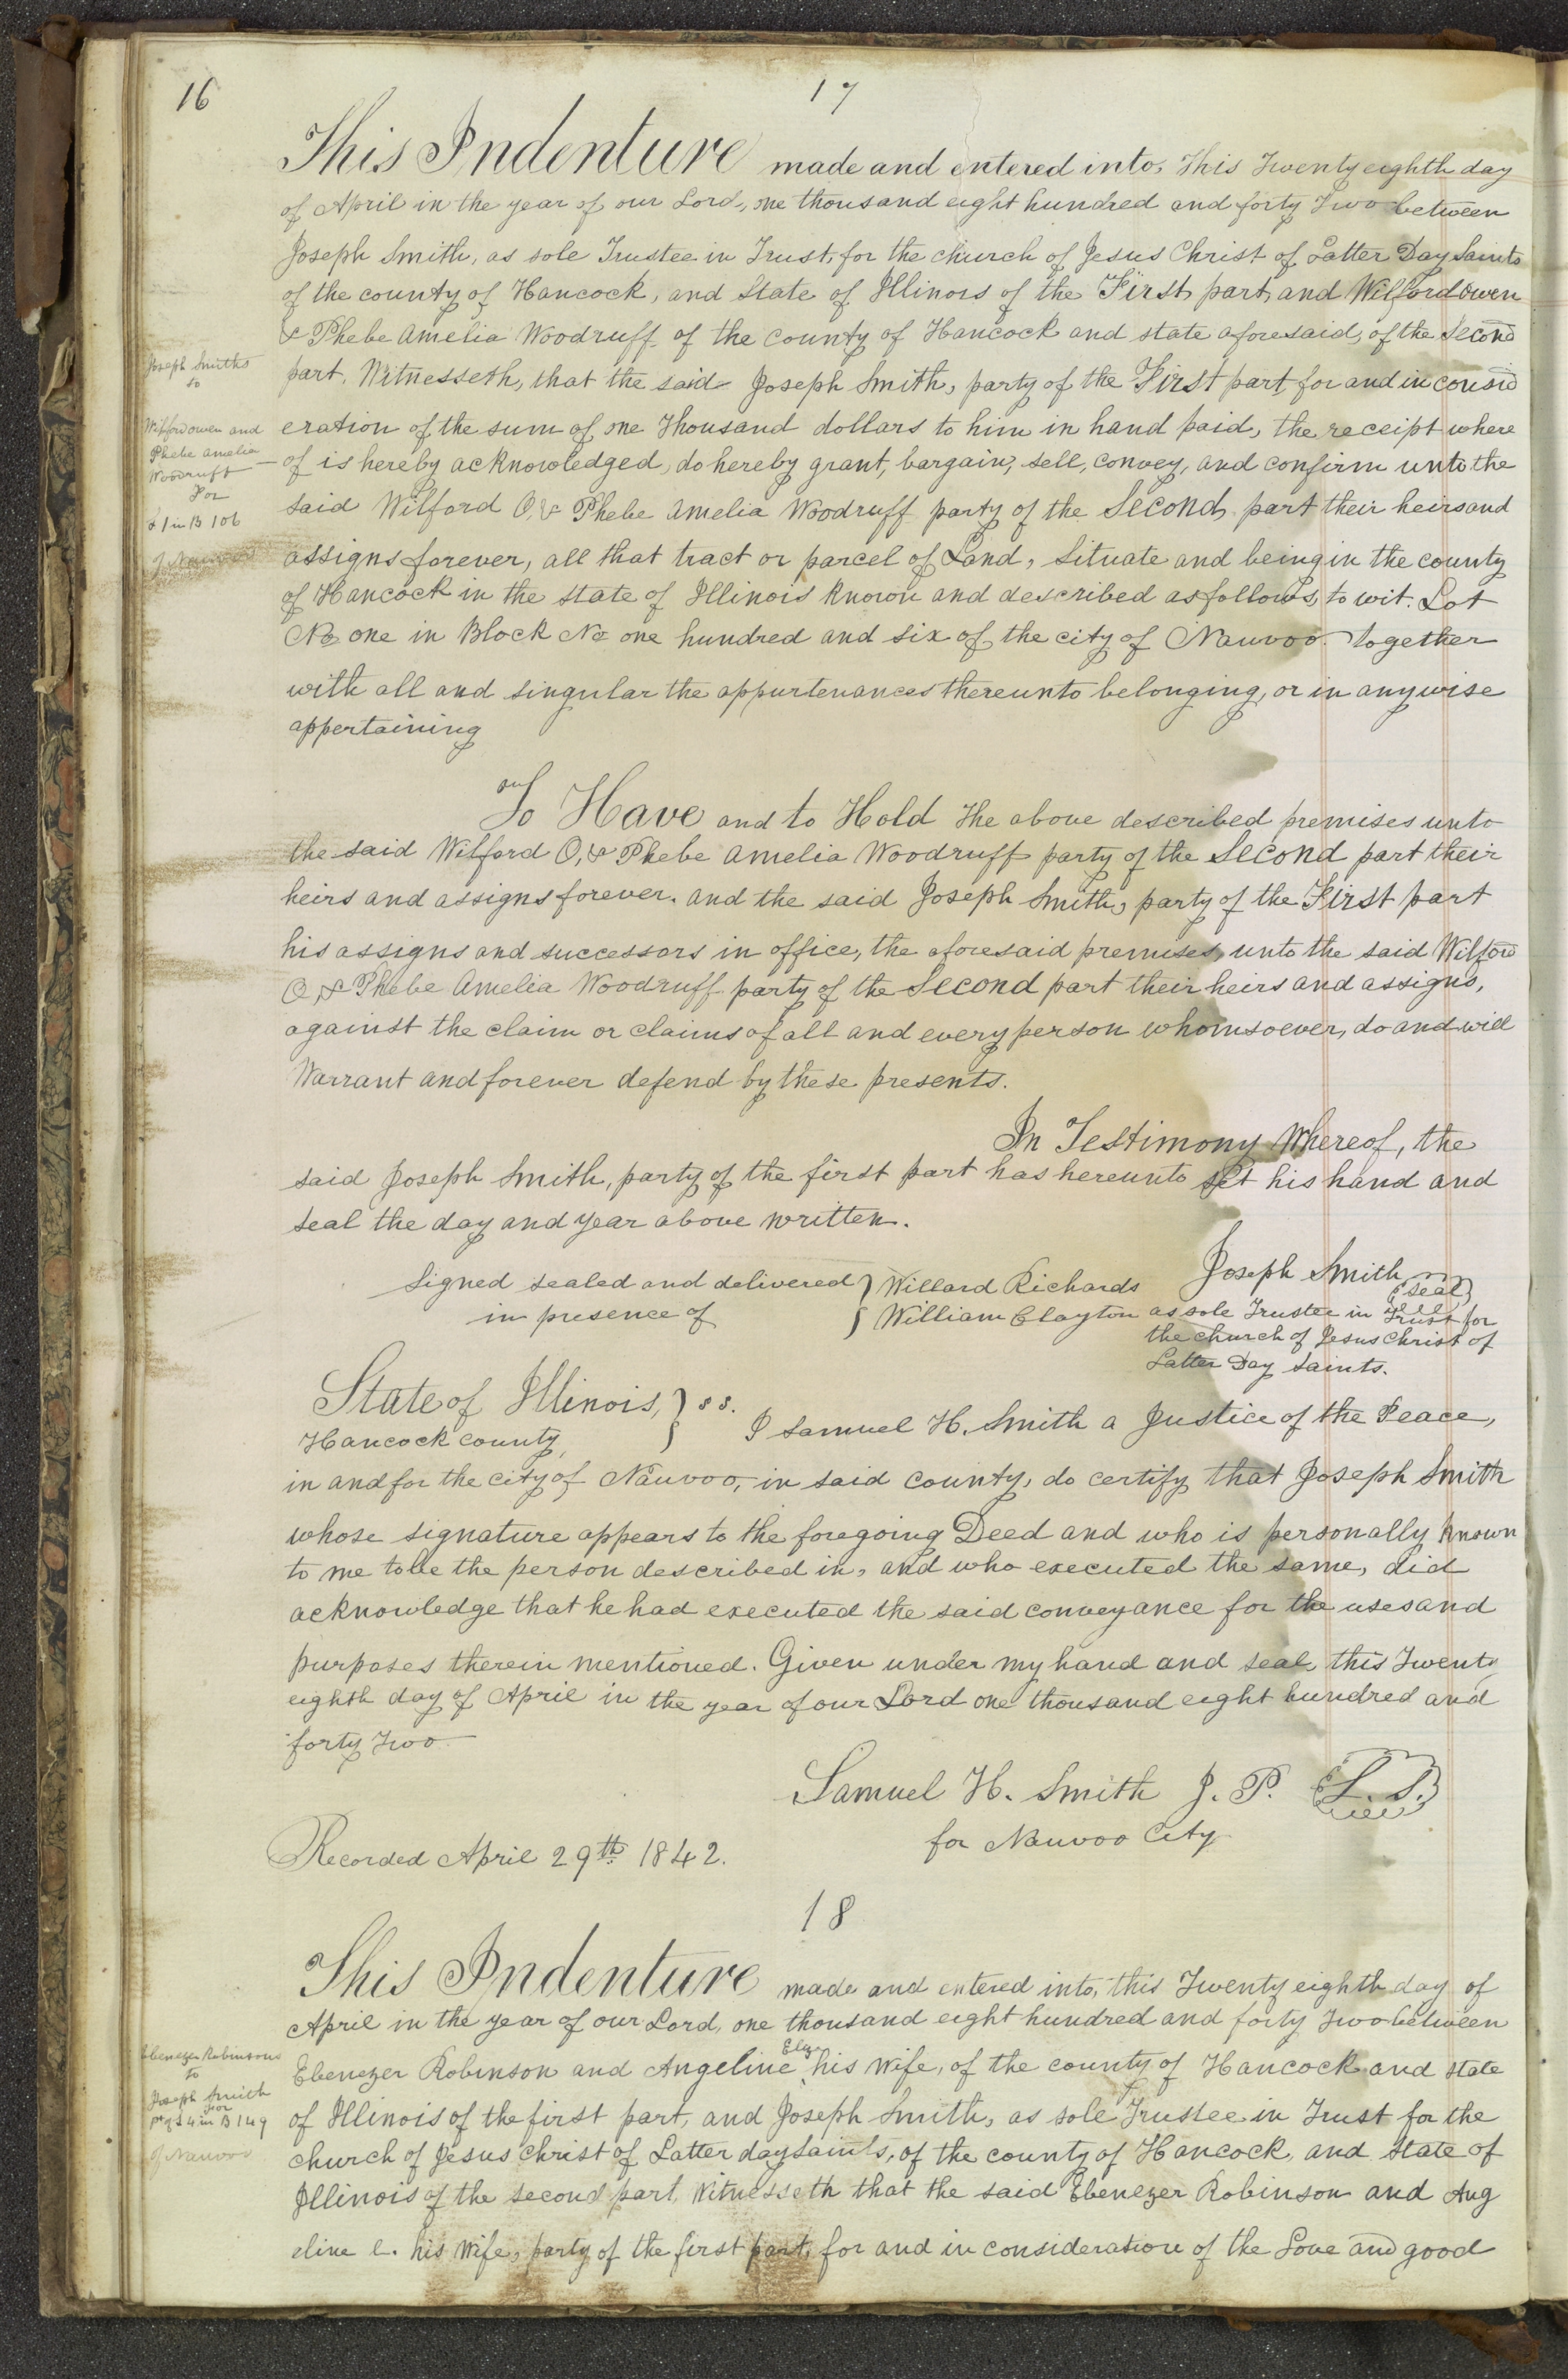 16
17
This Indenture made and entered into, This Twenty eighth day
of April in the year of our Lord, one thousand eight hundred and forty Two between
Joseph Smith, as sole Trustee in Trust, for the church of Jesus Christ of Latter Day Saints
of the county of Hancock, and State of Illinois of the First part, and Wilford Owen
& Phebe Amelia Woodruff of the county of Hancock and state aforesaid, of the Second
part, Witnesseth, that the said Joseph Smith, party of the First part, for and in consid
eration of the sum of one Thousand dollars to him in hand paid, the receipt where
of is hereby acknowledged, do hereby grant, bargain, sell, convey, and confirm unto the
said Wilford O, & Phebe Amelia Woodruff party of the Second, part their heirs and
assigns forever, all that tract or parcel of Land, Situate and being in the county
of Hancock in the state of Illinois known and described as follows, to wit. Lot
No one in Block No one hundred and six of the city of Nauvoo. together
with all and singular the appurtenances thereunto belonging, or in anywise
appertaining
Joseph Smiths
to
Wilford owen and
Phebe amelia
Woodruff
For
L 1 in B 106
of Nauvoo
To Have and to Hold The above described premises unto
the said Wilford O, & Phebe Amelia Woodruff party of the Second part their
heirs and assigns forever. and the said Joseph Smith, party of the First part
his assigns and successors in office, the aforesaid premises, unto the said Wilford
O, & Phebe Amelia Woodruff party of the Second part their heirs and assigns,
against the claim or claims of all and every person whomsoever, do and will
Warrant and forever defend by these presents.
In Testimony Whereof, the
said Joseph Smith, party of the first part has hereunto set his hand and
seal the day and year above written.
Signed sealed and delivered } Willard Richards Joseph Smith {Seal}
in presence of } William Clayton as sole Trustee in Trust for
the church of Jesus Christ of
Latter Day Saints.
State of Illinois, } ss.
Hancock county, } I Samuel H. Smith a Justice of the Peace,
in and for the city of Nauvoo, in said county, do certify that Joseph Smith
whose signature appears to the foregoing Deed and who is personally known
to me to be the person described in, and who executed the same, did
acknowledge that he had executed the said conveyance for the uses and
purposes therein mentioned. Given under my hand and seal, this Twenty
eighth day of April in the year of our Lord one thousand eight hundred and
forty Two
Samuel H. Smith J. P. {L. S.}
for Nauvoo City
Recorded April 29th 1842.
18
This Indenture made and entered into, this Twenty eighth day of
April in the year of our Lord, one thousand eight hundred and forty Two between
Ebenezer Robinson and Angeline Elz his wife, of the county of Hancock and state
of Illinois of the first part, and Joseph Smith, as sole Trustee in Trust for the
church of Jesus Christ of Latter day Saints, of the county of Hancock, and State of
Illinois of the second part, Witnesseth that the said Ebenezer Robinson and Ang
eline E. his Wife, party of the first part, for and in consideration of the Love and good
Ebenezer Robinsons
to
Joseph Smith
For
pt of L 4 in B 149
of Nauvoo